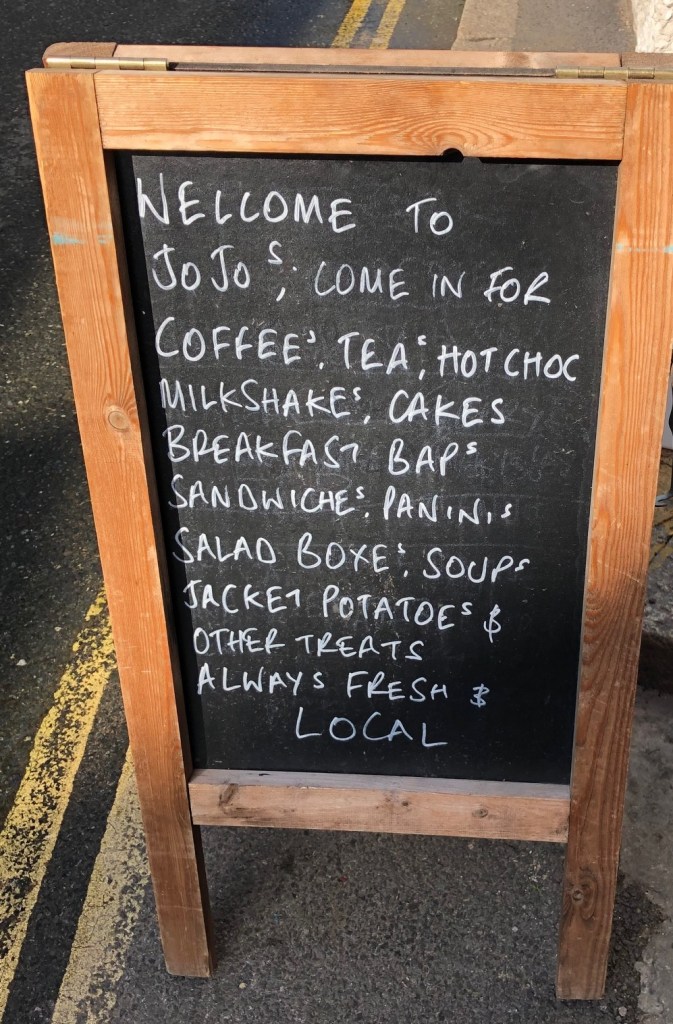 WELCOME TO
JOJOS, COME IN FOR
COFFEES, TEAS, HOT CHOC
MILKSHAKES, CAKES
BREAKFAST BAPS
SANDWICHES, PANINIS
SALAD BOXES, SOUPS
JACKET POTATOES &
OTHER TREATS
ALWAYS FRESH &
LOCAL